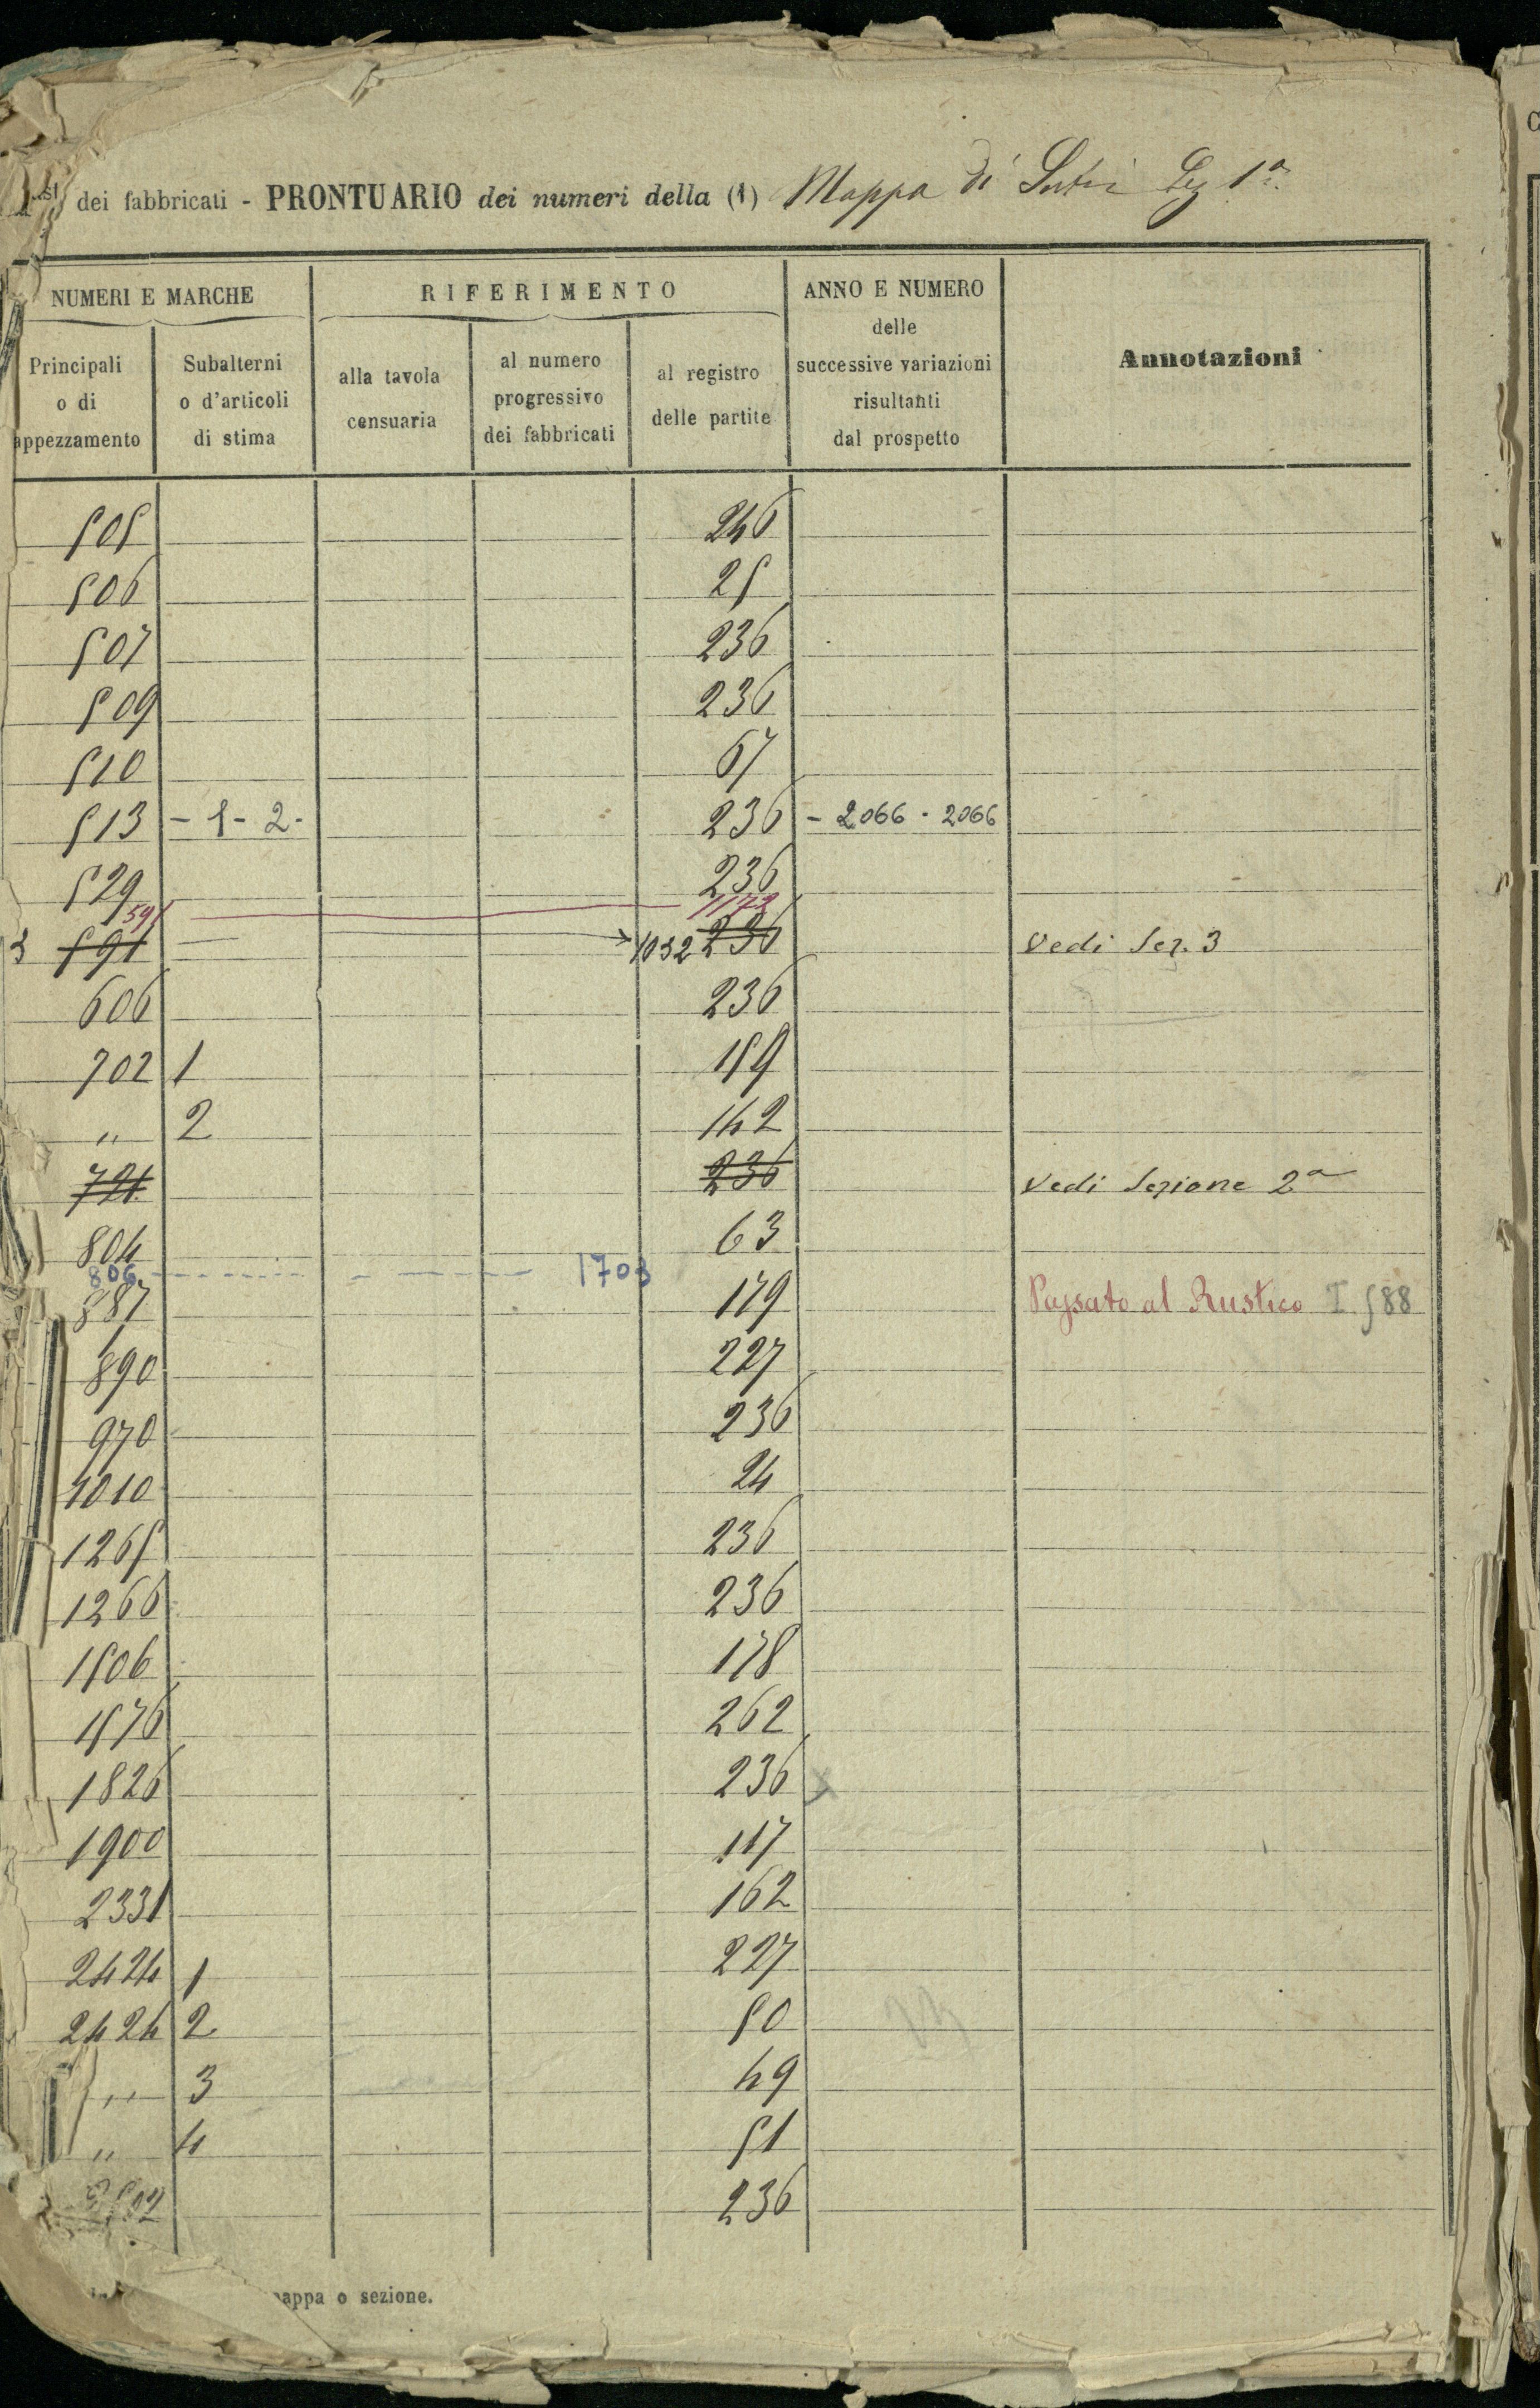 dei fabbricati - PRONTUARIO dei numeri della (1) Mappa di Sutri Sez 1ª
NUMERI E MARCHE
RIFERIMENTO
ANNO E NUMERO
delle
successive variazioni
risultanti
dal prospetto
Annotazioni
Principali
o di
appezzamento
Subalterni
o d'articoli
di stima
alla tavola
censuaria
al numero
progressivo
dei fabbricati
al registro
delle partite
505 246
506 25
507 236
509 236
510 67
513 - 1 - 2 - 236 - 2066 - 2066
529 236
591 1172
3 591 1032 236 Vedi Sez. 3
606 236
702 1 159
" 2 142
721 236 Vedi Sezione 2ª
804 63
806 1703
887 179 Passato al Rustico I 588
890 227
970 236
1010 24
1265 236
1266 236
1506 178
1576 262
1826 236
1900 117
2331 162
2424 1 227
2424 2 50
" 3 49
" 4 51
236
mappa o sezione.